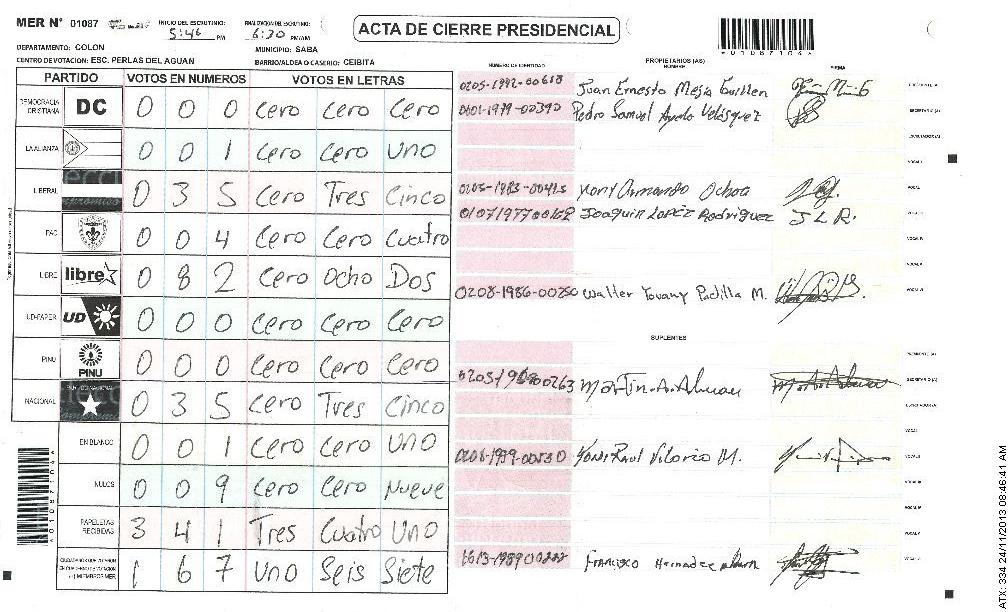 MER N° 01087
INICIO DEL ESCRUTINIO: 5:46 PM
FINALIZACION DEL ESCRUTINIO: 6:30 PM/AM
ACTA DE CIERRE PRESIDENCIAL
*01087104*
DEPARTAMENTO: COLON
MUNICIPIO: SABA
CENTRO DE VOTACION: ESC. PERLAS DEL AGUAN
BARRIO/ALDEA O CASERIO: CEIBITA
PARTIDO VOTOS EN NUMEROS VOTOS EN LETRAS
DEMOCRACIA CRISTIANA DC 0 0 0 Cero Cero Cero
LA ALIANZA 0 0 1 Cero Cero Uno
LIBERAL 0 3 5 Cero Tres Cinco
PAC 0 0 4 Cero Cero Cuatro
LIBRE libre 0 8 2 Cero Ocho Dos
UD-FAPER UD 0 0 0 Cero Cero Cero
PINU PINU 0 0 0 Cero Cero Cero
NACIONAL 0 3 5 Cero Tres Cinco
EN BLANCO 0 0 1 Cero Cero Uno
NULOS 0 0 9 Cero Cero Nueve
PAPELETAS RECIBIDAS 3 4 1 Tres Cuatro Uno
1 6 7 Uno Seis Siete
NUMERO DE IDENTIDAD
PROPIETARIOS (AS)
NOMBRE
FIRMA
0205-1992-00618 Juan Ernesto Mejia Guillen
PRESIDENTE (A)
Pedro Samuel Ayala Velásquez
SECRETARIO (A)
ESCRUTADOR (A)
VOCAL I
0205-1983-00415 Yony Armando Ochoa
0107197700168 Joaquin Lopez Rodriguez J L R.
0208-1986-00250 Walter Yovany Padilla M.
SUPLENTES
PRESIDENTE (A)
SECRETARIO (A)
ESCRUTADOR (A)
Yoni Raul Vitorio M.
1613-1989 Francisco Hernandez
*01087104*
ATX: 334 24/11/2013 08:46:41 AM